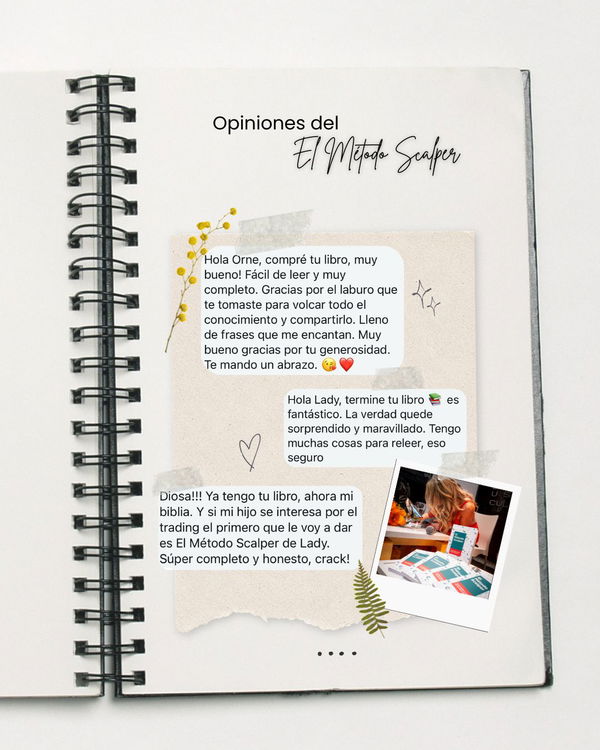 Opiniones del
El Método Scalper
Hola Orne, compré tu libro, muy
bueno! Fácil de leer y muy
completo. Gracias por el laburo que
te tomaste para volcar todo el
conocimiento y compartirlo. Lleno
de frases que me encantan. Muy
bueno gracias por tu generosidad.
Te mando un abrazo. 😘❤️
Hola Lady, termine tu libro 📚 es
fantástico. La verdad quede
sorprendido y maravillado. Tengo
muchas cosas para releer, eso
seguro
Diosa!!! Ya tengo tu libro, ahora mi
biblia. Y si mi hijo se interesa por el
trading el primero que le voy a dar
es El Método Scalper de Lady.
Súper completo y honesto, crack!